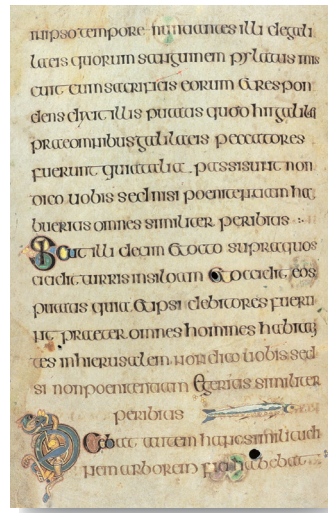 inipso tempore nuntiantes illi degali
laeis quorum sanguinem pylatus mis
cuit cum sacrificiis eorum & respon
dens dixit illis putatis quod hi galilei
prae omnibus galilaeis peccatores
fuerunt quia talia passi sunt non
dico uobis sed nisi poenitentiam ha
bueritis omnes similiter peribitis
Sicut illi decim & octo supra quos
cecidit turris insiloam & occidit eos
putatis quia & ipsi debitores fueru
nt praeter omnes homines habitan
tes inhierusalem non dico uobis sed
si non poenitentiam egeritis similiter
peribitis
Dicebat autem hanc similitudi
nem arborem fici habebat